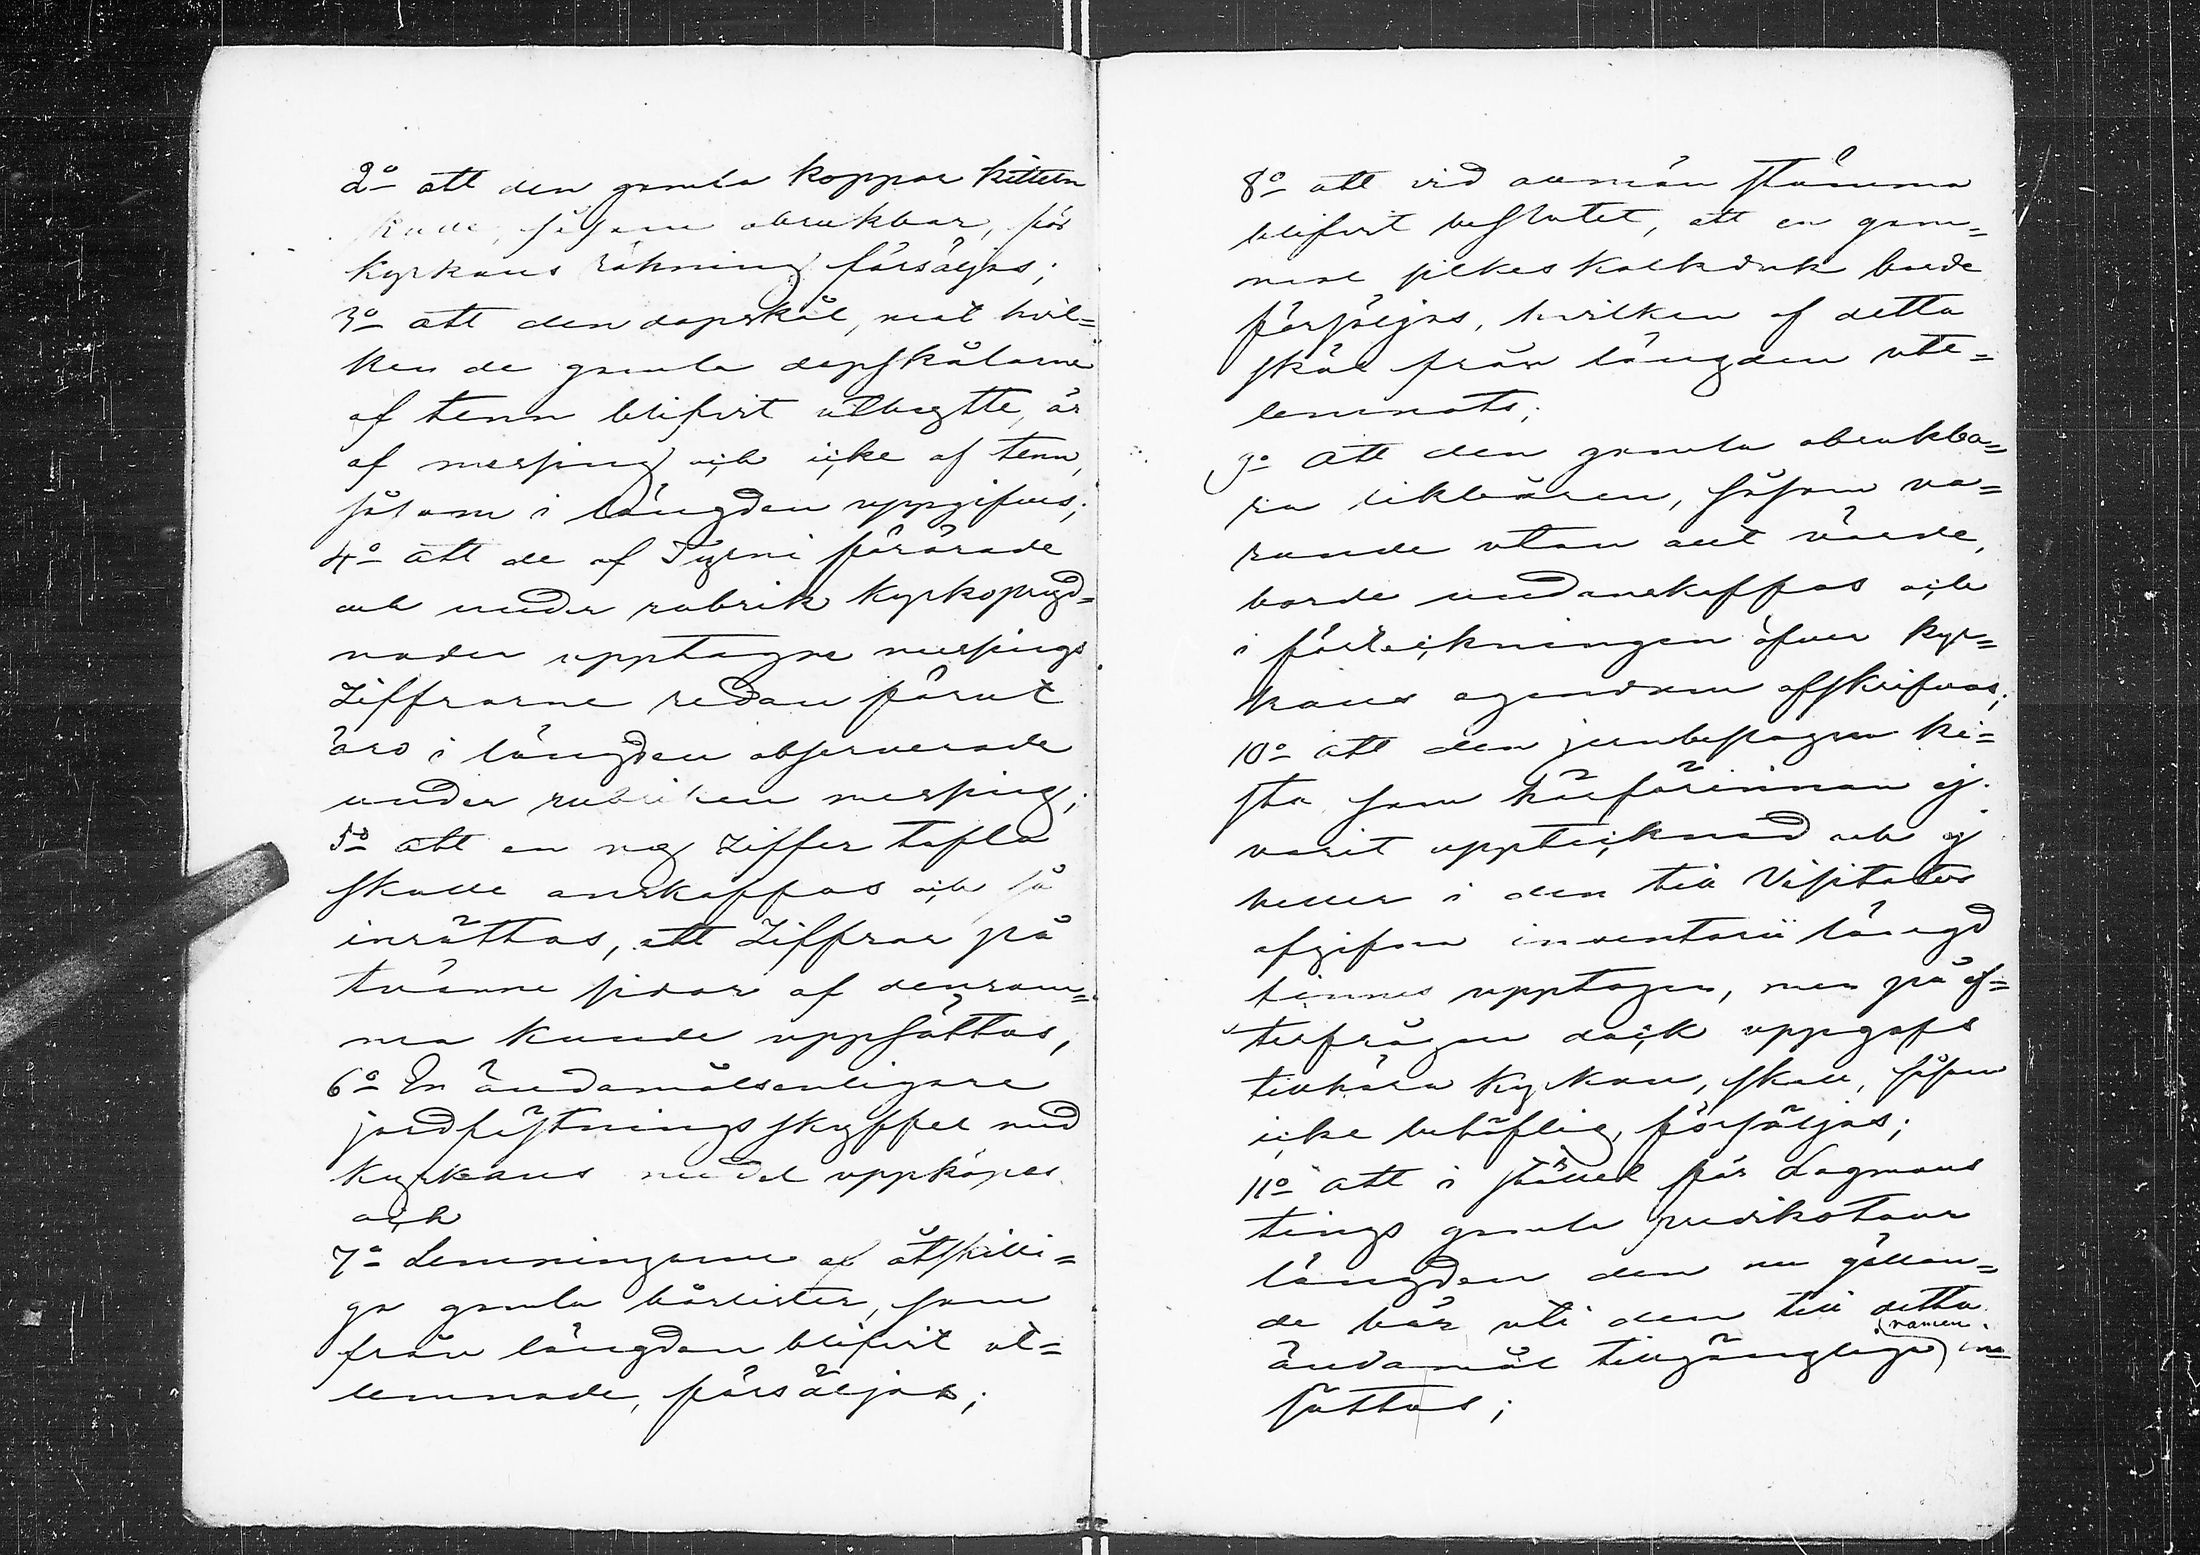 2o att den gamla koppar kitteln
skulle, såsom obrukbar, för
Kyrkans räkning försäljas;
3o att den dopskål, mot hvil=
ken de gamla dopskålarne
af tenn blifvit utbytte, är
af messing och icke af tenn,
såsom i längden uppgifves;
4o att de af Tyrni förärade
och under rubrik Kyrkopryd=
nader upptagne messings
Ziffrorne redan förut
äro i längden observerade
under rubriken messing;
5o att en ny Ziffer tafla
skulle anskaffas och så
inrättas, att Ziffror på
tvänne sidor af densam=
ma kunde uppsättas,
6o En ändamålsenligare
jordfästnings skyffel med
Kyrkans medel uppköpes
och
7o Lemningarne af åtskilli=
ga gamla bårlister, som
från längden blifvit ut=
lemnade, försäljas;
8o att vid allmän stämma
blifvit beslutet, att en gam=
mal silkes kalkduk borde
försäljas, hvilken af detta
skäl från längden ute=
lemnats;
9o att den gamla obrukba=
ra likbåren, såsom va=
rande utan allt värde,
borde undanskaffas och
i förteckningen öfver Kyr=
kans egendom afskrifvas;
10o att den jernbeslagna ki=
sta som härförinnan ej
varit upptecknad och ej
heller i den till Visitator
afgifna inventarii längd
finnes upptagen, men på ef=
terfrågan dock uppgafs
tillhöra Kyrkan, skall, såsom
icke behöflig, försäljas;
11o att i stället för Lagmans
tings gamla predikoturs
längden den nu gällan=
de bör uti den till detta
ändamål tillgängliga ramen in=
sättas;